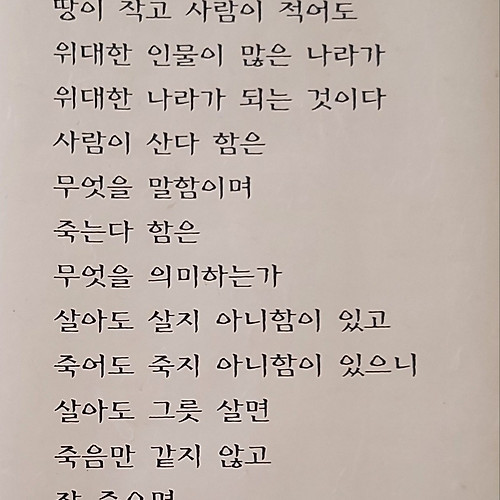 땅이 작고 사람이 적어도
위대한 인물이 많은 나라가
위대한 나라가 되는 것이다
사람이 산다 함은
무엇을 말함이며
죽는다 함은
무엇을 의미하는가
살아도 살지 아니함이 있고
죽어도 죽지 아니함이 있으니
살아도 그릇 살면
죽음만 같지 않고
잘 죽으면